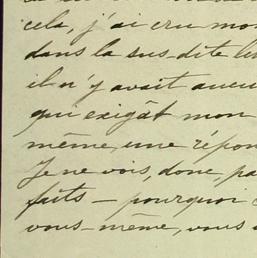 cela, j'ai cru mon
dans la sus-dite
il n'y avait aucu
qui exigât mon
même, une répon
Je ne vois, donc, pa
fûts — pourquoi
vous-même, vous